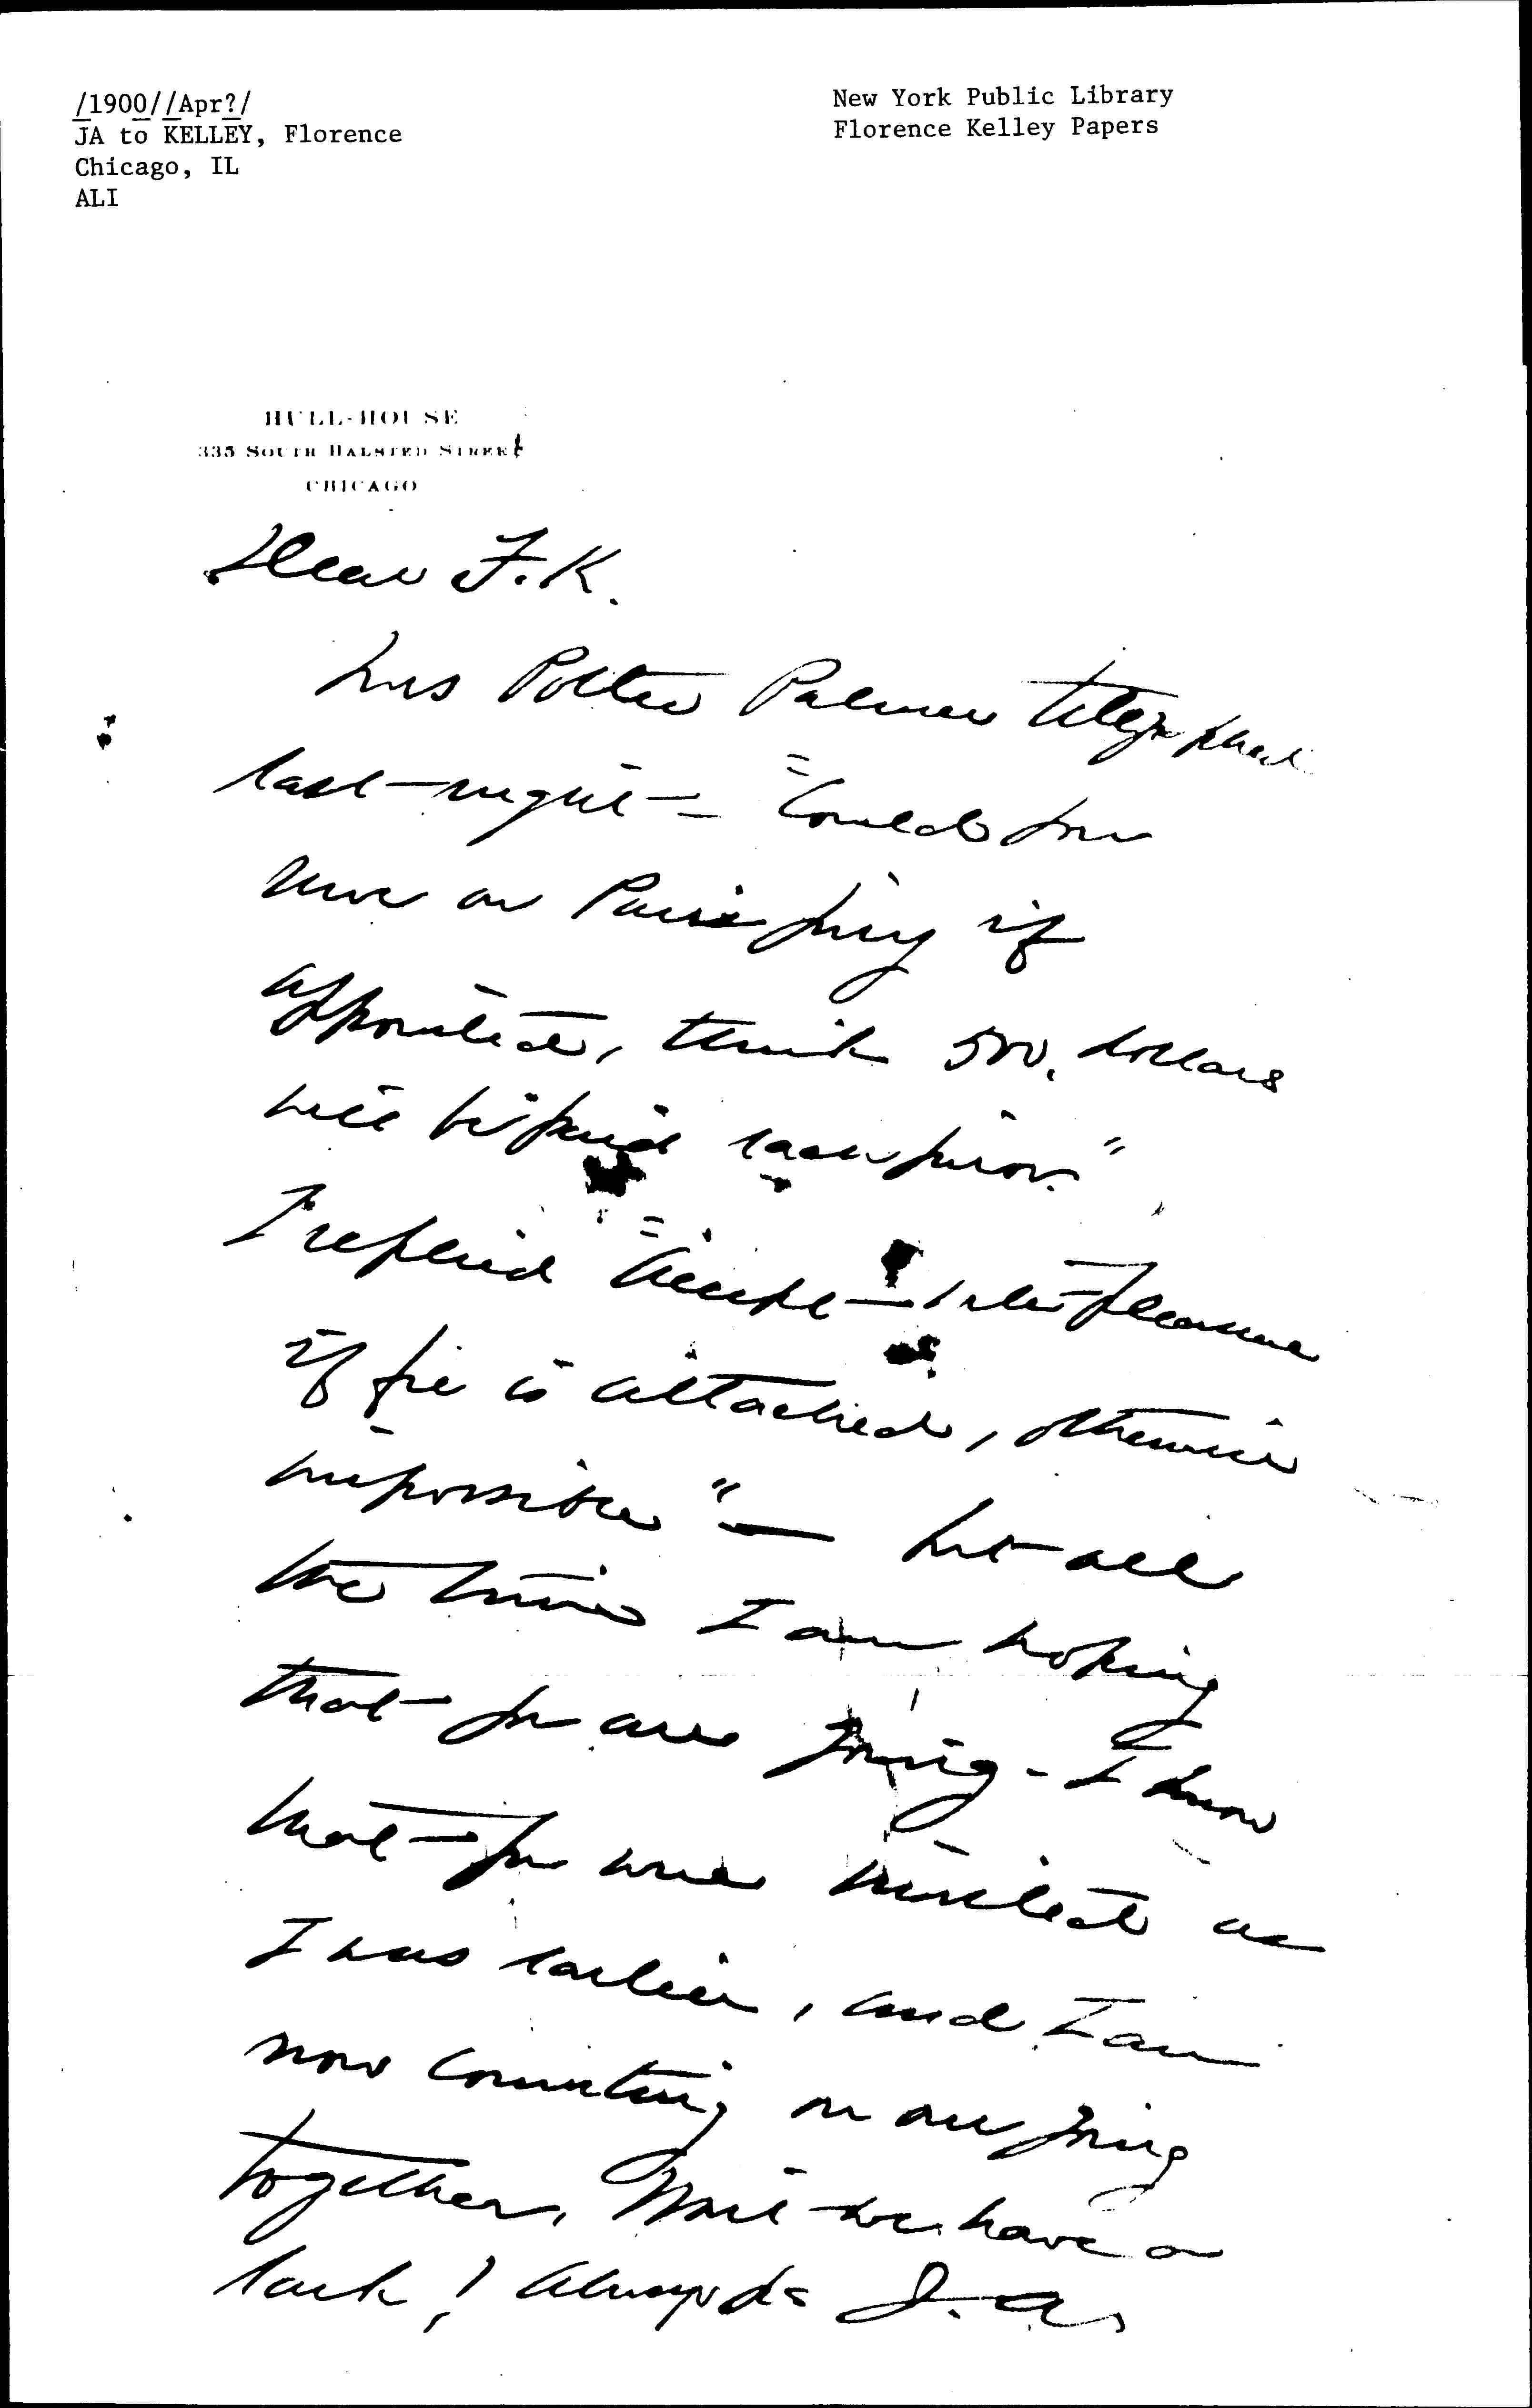 /1900//Apr?/
JA to KELLEY, Florence
Chicago, IL
ALI
New York Public Library
Florence Kelley Papers
HULL-HOUSE
335 SOUTH HALSTED STREET
CHICAGO
Dear F.K.
Mrs Potter Palmer telegraphed
last night – "Could you
serve on Paris jury if
appointed, think 500. dollars
will be paid each juror."
I replied "Accept with pleasure
if fee is attached, otherwise
impossible" — but all
the time I am hoping
that you are going - I know
that you were invited as
I was earlier, and I am
now counting on our going
together, Won't we have a
lark! Always yrs J.A.